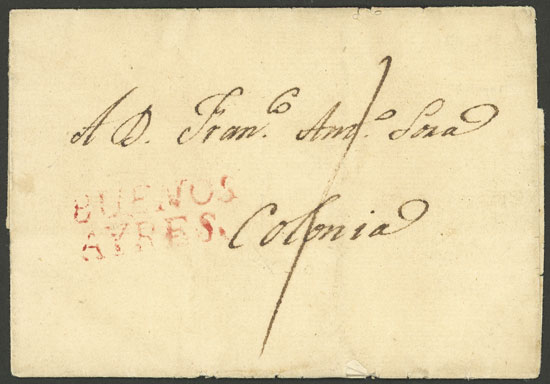 A D. Fran.co Ant.o Sosa
BUENOS
AYRES.
Colonia
1